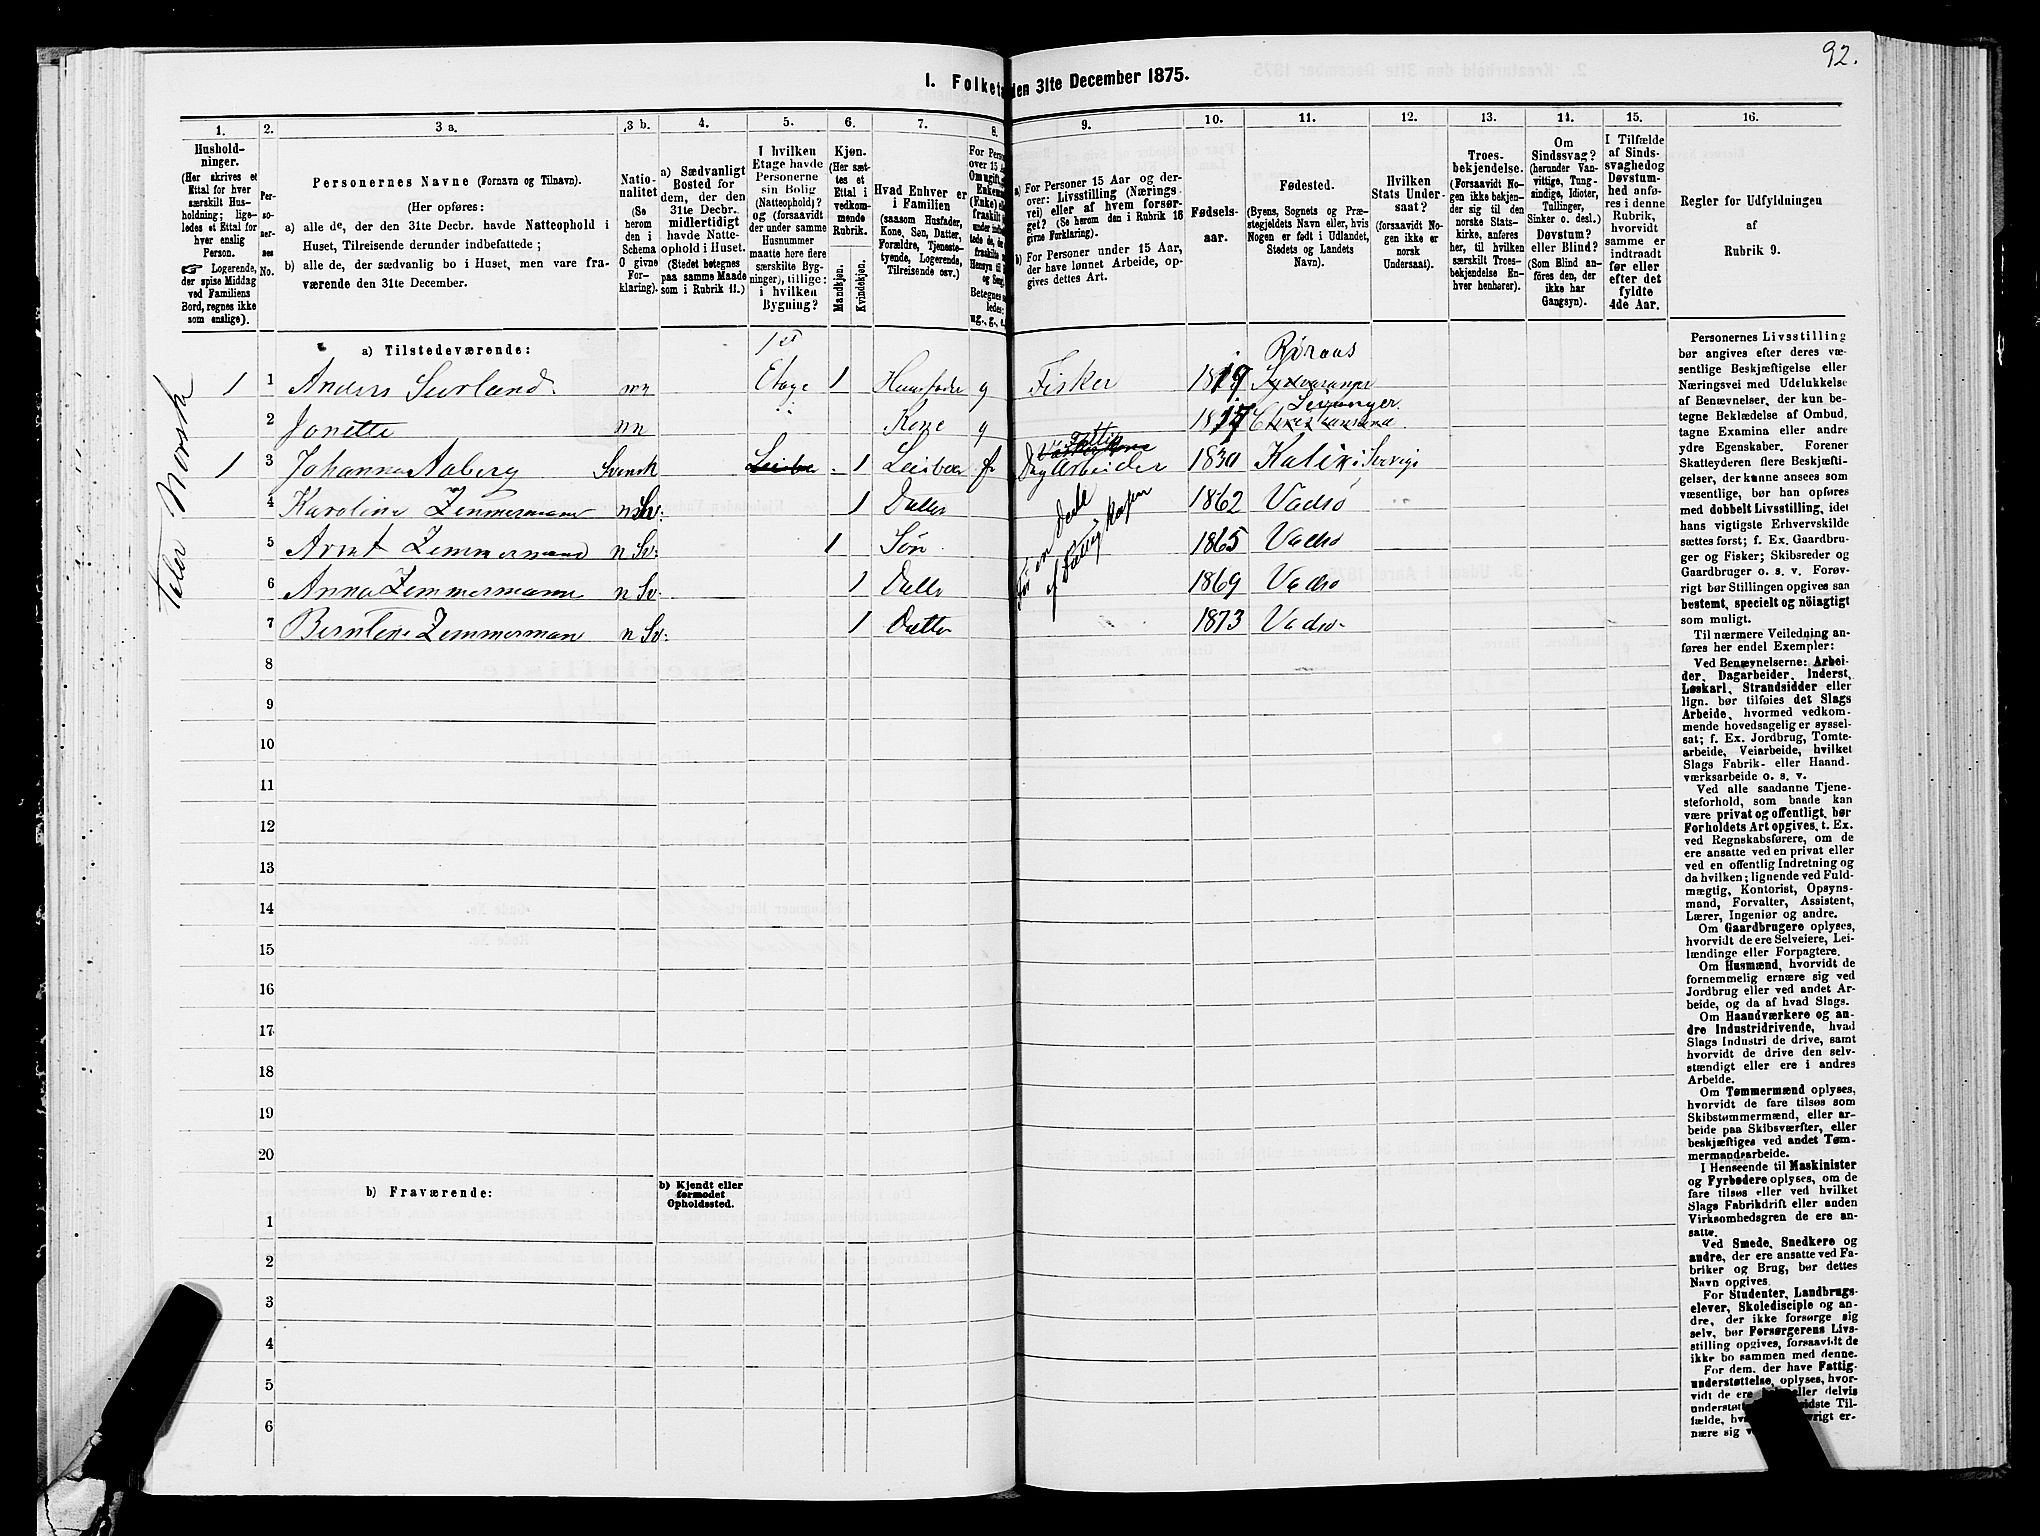 92.
I. Folketæ den 31te December 1875.
1. 2. 3 a. 3 b. 4. 5. 6. 7. 8. 9. 10. 11. 12. 13. 14. 15. 16.
Hushold-
ninger.
(Her skrives et
Ettal for hver
særskilt Hus-
holdning; lige-
ledes et Ettal for
hver enslig
Person.
☞ Logerende,
der spise Middag
ved Familiens
Bord, regnes ikke
som enslige).
Per-
so-
ner-
nes
No.
Personernes Navne (Fornavn og Tilnavn).
(Her opføres:
a) alle de, der den 31te Decbr. havde Natteophold i
Huset, Tilreisende derunder indbefattede;
b) alle de, der sædvanlig bo i Huset, men vare fra-
værende den 31te December.
Natio-
nalitet
(Se
herom
den i
Schema
O givne
For-
klaring).
a) Sædvanligt
Bosted for
dem, der den
31te Decbr.
midlertidigt
havde Natte-
ophold i Huset.
(Stedet betegnes
paa samme Maade
som i Rubrik 11.)
I hvilken
Etage havde
Personerne
sin Bolig
(Natteophold)?
og (forsaavidt
der under samme
Husnummer
maatte høre flere
særskilte Byg-
ninger), tillige:
i hvilken
Bygning?
Kjøn.
(Her sæt-
tes et
Ettal i
vedkom-
mende
Rubrik.
Mandkjøn.
Kvindekjøn.
Hvad Enhver er
i Familien
(saasom Husfader,
Kone, Søn, Datter,
Forældre, Tjeneste-
tyende, Logerende,
Tilreisende osv.)
For Pers
over 15 Aa
Om ugift, g
Enkema
(Enke) elle
fraskilt
a) For Personer 15 Aar og der-
over: Livsstilling (Nærings-
vei) eller af hvem forsør-
get? (Se herom den i Rubrik 16
givne Forklaring).
b) For Personer under 15 Aar,
der have lønnet Arbeide, op-
gives dettes Art.
Fødsels-
aar.
Fødested.
(Byens, Sognets og Præ-
stegjeldets Navn eller, hvis
Nogen er født i Udlandet,
Stedets og Landets
Navn).
Hvilken
Stats Under-
saat?
(forsaavidt No-
gen ikke er
norsk
Undersaat).
Troes-
bekjendelse.
(Forsaavidt No-
gen ikke bekjen-
der sig til den
norske Stats-
kirke, anføres
her, til hvilken
særskilt Troes-
bekjendelse En-
hver henhører).
Om
Sindssvag?
(herunder Van-
vittige, Tung-
sindige, Idioter,
Tullinger,
Sinker o. desl.)
Døvstum?
eller Blind?
(Som Blind an-
føres den, der
ikke har
Gangsyn).
I Tilfælde
af Sinds-
svaghed og
Døvstum-
hed anfø-
res i denne
Rubrik,
hvorvidt
samme er
indtraadt
før eller
efter det
fyldte
4de Aar.
Regler for Udfyldningen
af
Rubrik 9.
a) Tilstedeværende:
Taler Norsk
1 1 Anders Surland nn 1st Etage 1 Huusfader g Fisker 1819 Røraas Sydvaranger
2 Jonette nn " Kone g 1817 Levanger
1 3 Johanna Aaberg Svensk 1 f Dagarbeider 1830 Kalix i Sverige
4 Karoline Zemmermann n Sv. 1 Datter 1862 Vadsø
5 Arnt Zemmermand n Sv. 1 Søn 1865 Vadsø
6 Anna Zemmermann n Sv. 1 Datter 1869 Vadsø
7 Berntine Zemmerman n Sv. 1 Datter 1873 Vadsø
8
9
10
11
12
13
14
15
16
17
18
19
20
b) Fraværende:
b) Kjendt eller
formodet
Opholdssted.
1
2
3
4
5
6
Personernes Livsstilling
bør angives efter deres væ-
sentlige Beskjæftigelse eller
Næringsvei med Udelukkelse
af Benævnelser, der kun be-
tegne Beklædelse af Ombud,
tagne Examina eller andre
ydre Egenskaber. Forener
Skatteyderen flere Beskjæfti-
gelser, der kunne ansees som
væsentlige, bør han opføres
med dobbelt Livsstilling, idet
hans vigtigste Erhvervskilde
sættes først; f. Ex. Gaardbru-
ger og Fisker; Skibsreder og
Gaardbruger o. s. v. Forøv-
rigt bør Stillingen opgives saa
bestemt, specielt og nöiagtigt
som muligt.
Til nærmere Veiledning an-
føres her endel Exempler:
Ved Benævnelserne: Arbei-
der, Dagarbeider, Inderst,
Løskarl, Strandsidder eller
lign. bør tilføies det Slags
Arbeide, hvormed vedkom-
mende hovedsagelig er syssel-
sat; f. Ex. Jordbrug, Tomte-
arbeide, Veiarbeide, hvilket
Slags Fabrik- eller Haand-
værksarbeide o. s. v.
Ved alle saadanne Tjene-
steforhold, som baade kan
være privat og offentligt, bør
Forholdets Art opgives, t. Ex.
ved Regnskabsførere, om de
ere ansatte ved en privat eller
ved en offentlig Indretning og
da hvilken; lignende ved Fuld-
mægtig, Kontorist, Opsyns-
mand, Forvalter, Assistent,
Lærer, Ingeniør og andre.
Om Gaardbrugere oplyses,
hvorvidt de ere Selveiere, Lei-
lændinge eller Forpagtere.
Om Husmænd, hvorvidt de
fornemmelig ernære sig ved
Jordbrug eller ved andet Ar-
beide, og da af hvad Slags.
Om Haandværkere og an-
dre Industridrivende, hvad
Slags Industri de drive, samt
hvorvidt de drive den selv-
stændigt eller ere i andres
Arbeide.
Om Tømmermænd oplyses,
hvorvidt de fare tilsøs som
Skibstømmermænd, eller ar-
beide paa Skibsværfter, eller
beskjæftiges ved andet Tøm-
mermandsarbeide.
I Henseende til Maskinister
og Fyrbødere oplyses, om de
fare tilsøs eller ved hvilket
Slags Fabrikdrift eller anden
Virksomhedsgren de ere an-
satte.
Ved Smede, Snedkere og
andre, der ere ansatte ved Fa-
briker og Brug, bør dettes
Navn opgives.
For Studenter, Landbrugs-
elever, Skoledisciple og an-
dre, der ikke forsørge sig
selv, bør Forsørgerens Livs-
stilling opgives, forsaavidt de
ikke bo sammen med denne.
For dem, der have Fattig-
understøttelse, oplyses, hvor-
vidt de ere eller delvis
understøt idste Til-
fælde, hv vrigt er-
nære sig